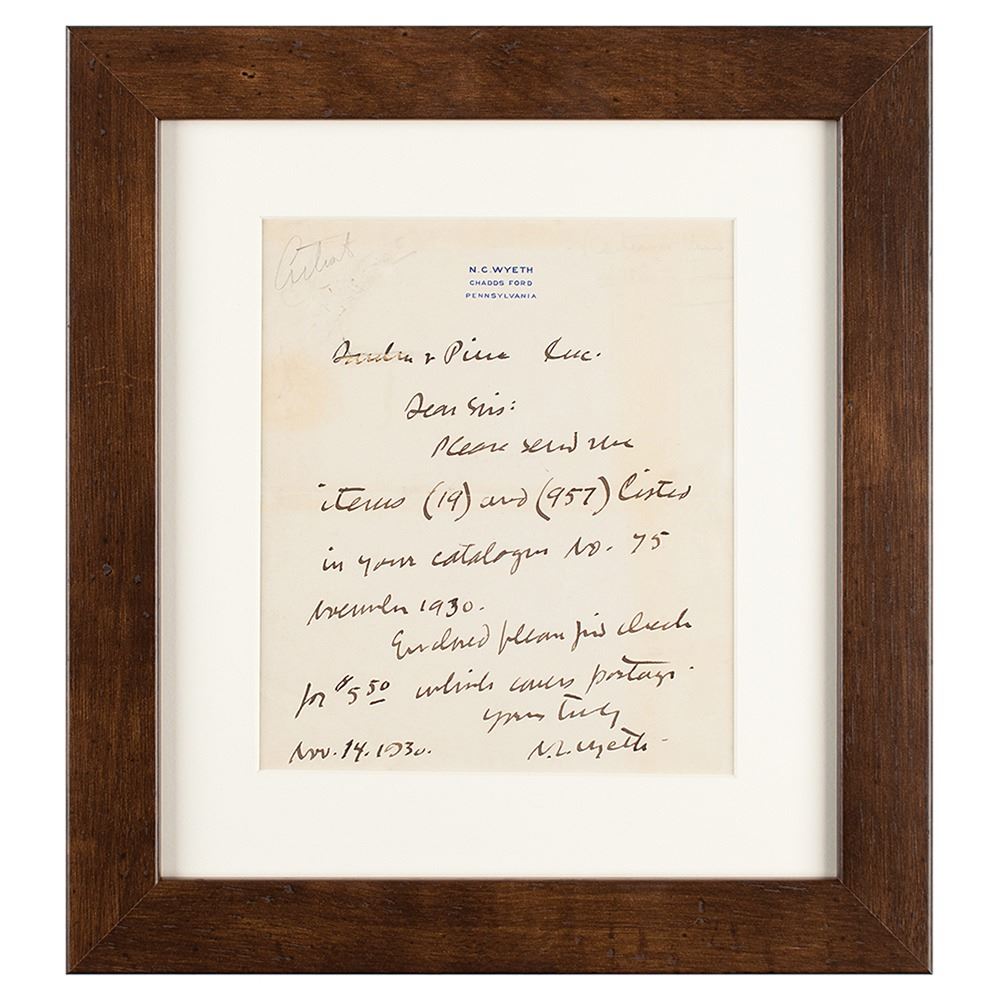 Artist
N.C. WYETH
CHADDS FORD
PENNSYLVANIA
& Inc.
Dear Sirs:
Please send me
items (19) and (957) listed
in your catalogue No. 75
November 1930.
Enclosed please find check
for $5.50 which covers postage.
Yours truly
Nov. 14. 1930. N.C. Wyeth